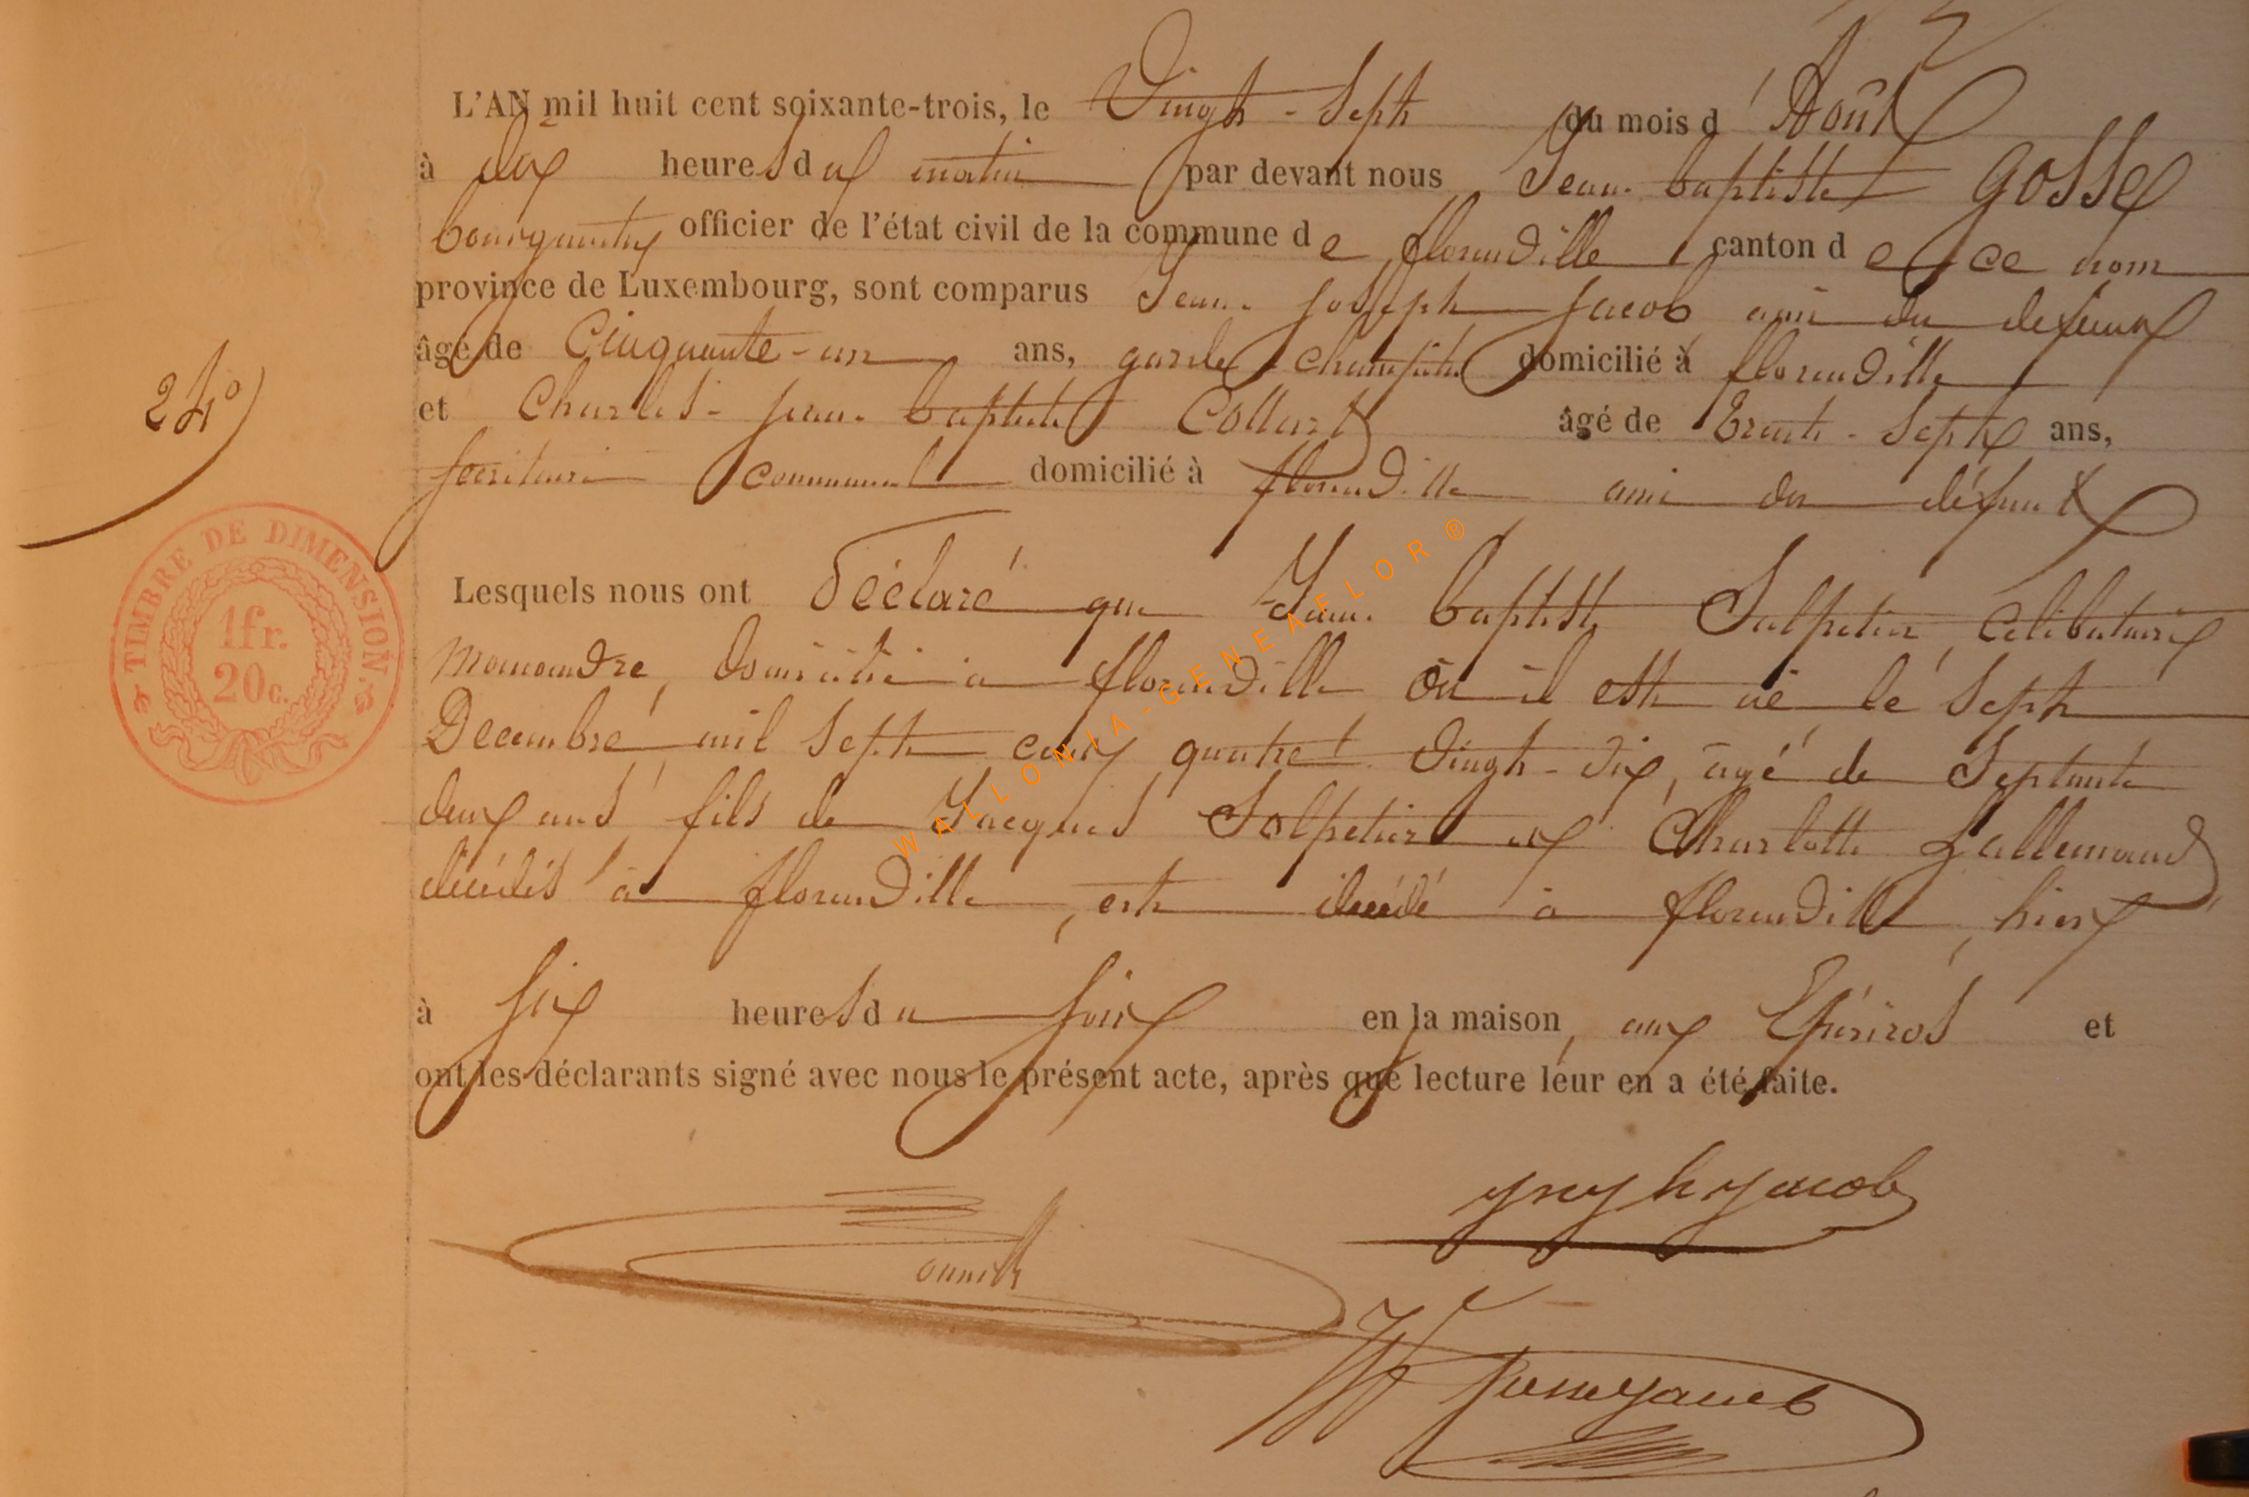 L'AN mil huit cent soixante-trois, le Vingt-Sept du mois d'Août
à dix heures du matin par devant nous Jean-baptiste GOSSE
bourgmestre officier de l'état civil de la commune de florenville canton de ce nom
province de Luxembourg, sont comparus Jean-Joseph Jacob ami du defunt
âgé de Cinquante-un ans, garde-champêtre domicilié à florenville
et Charles-jean-baptiste Collart âgé de Trente-Sept ans,
secrétaire communal domicilié à florenville ami du défunt
Lesquels nous ont déclaré que Jean-baptiste Salpeteur, célibataire
domicilié à florenville où il est né le sept
24°)
Décembre mil sept cent quatre vingt-dix, âgé de Septante
deux ans fils de Jacques Salpeteur et Charlotte Lallemand
décédés à florenville, est décédé à florenville, hier
à six heures du soir en la maison, aux et
ont les déclarants signé avec nous le présent acte, après que lecture leur en a été faite.
TIMBRE DE DIMENSION.
1fr.
20c.
WALLONIA-GENEAFLOR®
Jacob